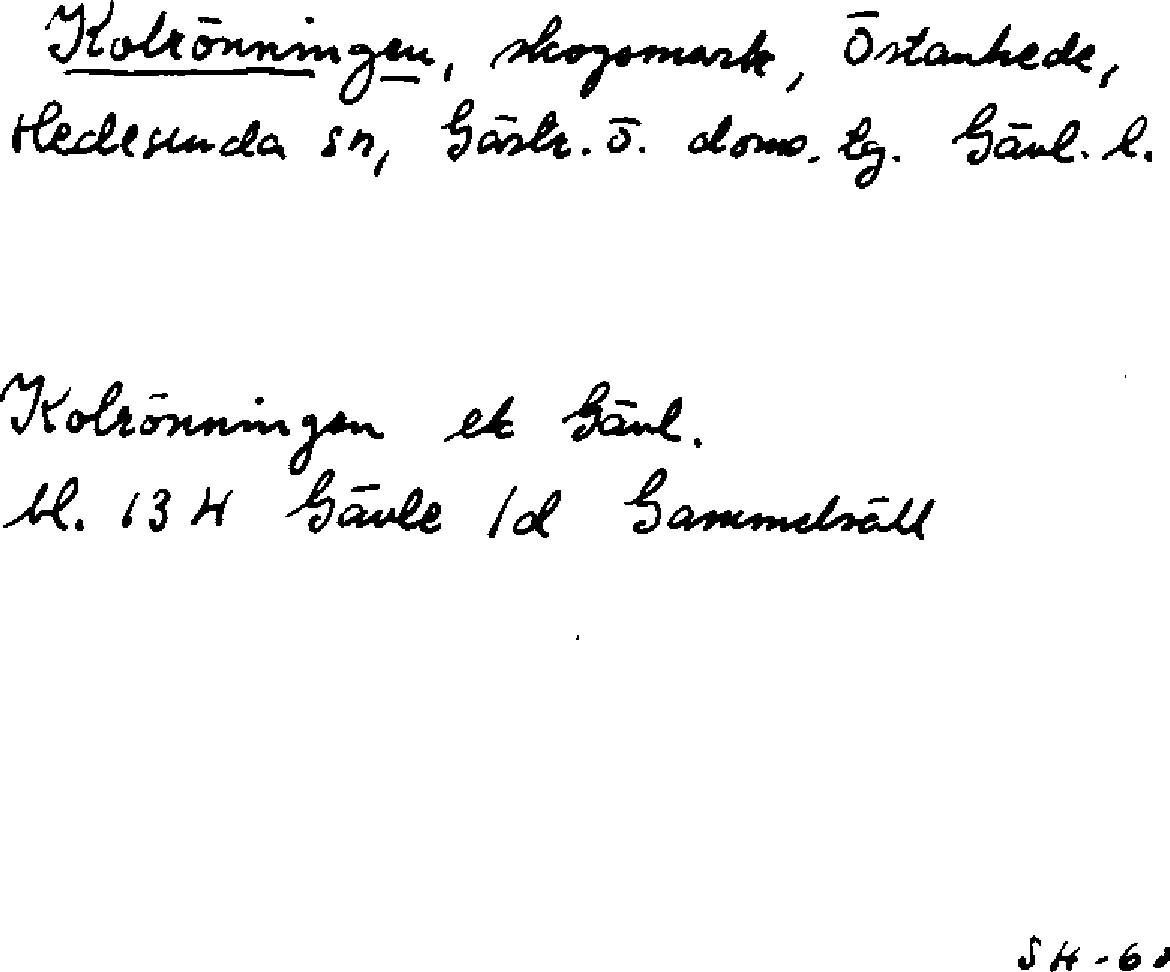 Kolrönningen, skogsmark, Östanhede,
Hedesunda sn, Gästr. ö. doms. lg. Gävl. l.
Kolrönningen ek Gävl.
bl. 13 H Gävle 1d Gammelsäll
SH-6